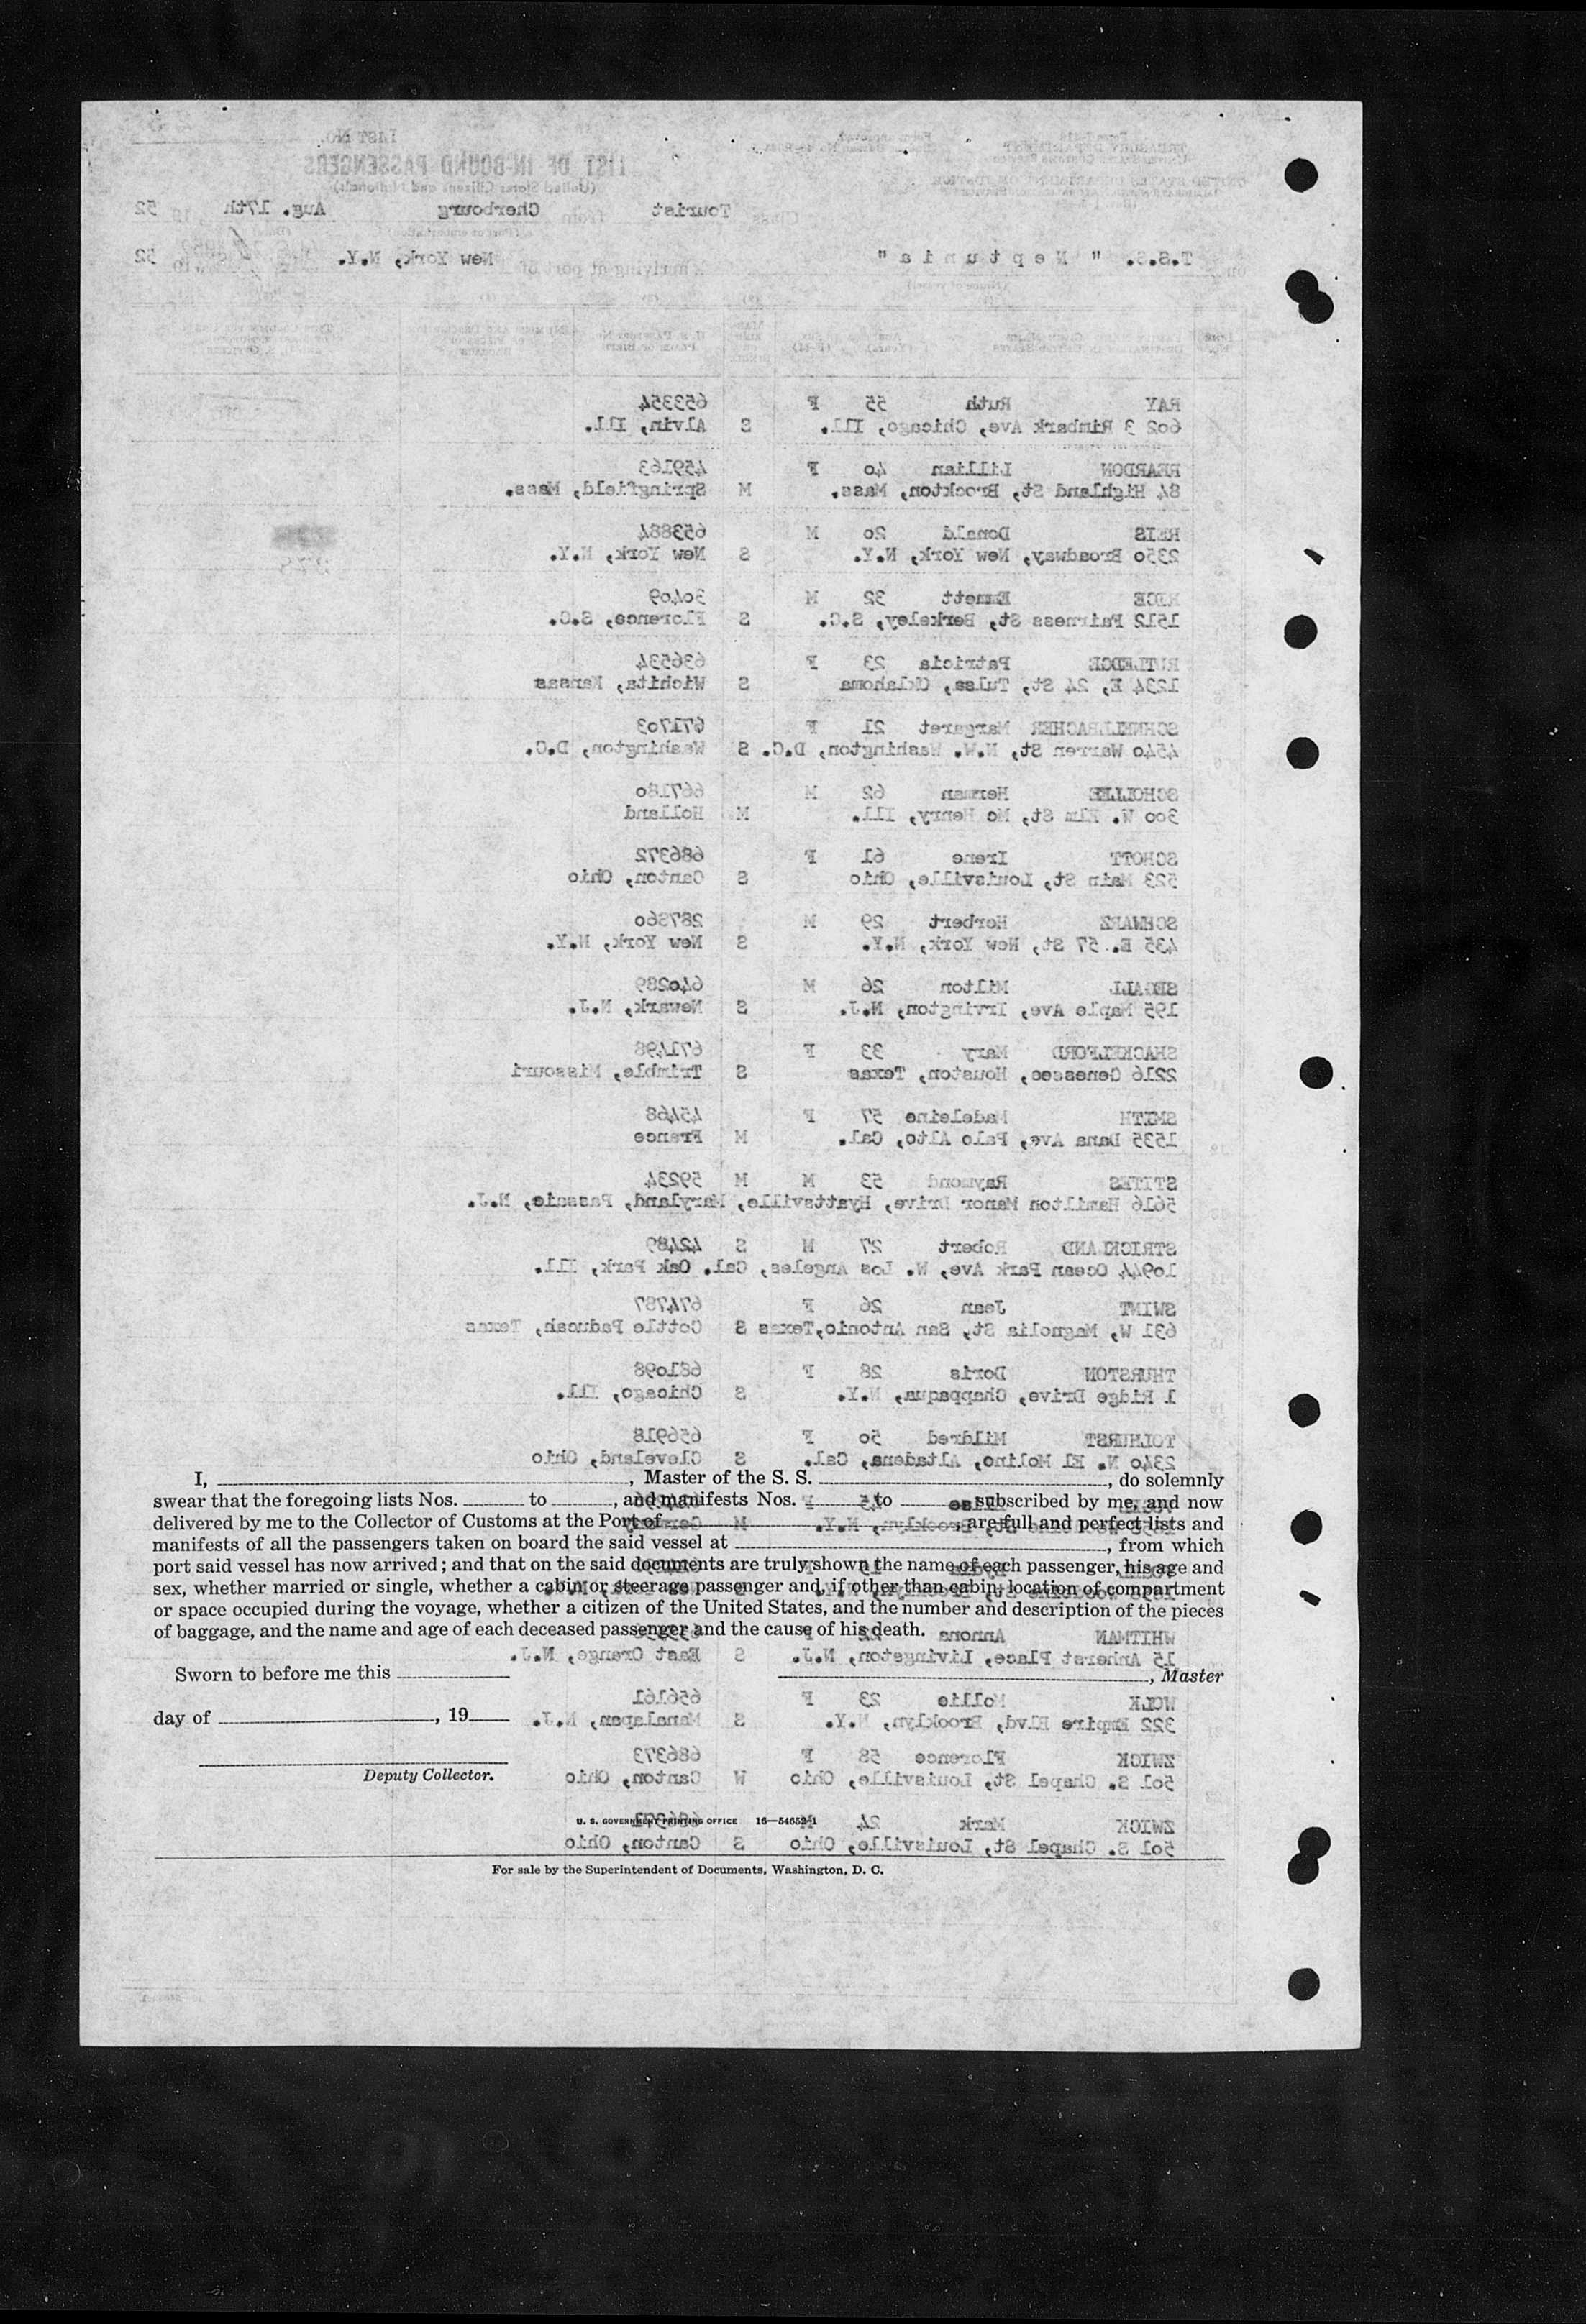 LIST NO.
LIST OF IN-BOUND PASSENGERS
(United States Citizens and Nationals)
Class Tourist from Cherbourg Aug. 17th 52
on T.S.S. " N e p t u n i a " arriving at port of New York, N.Y. 52
RAY Ruth 55 F 653354
6023 Rimbark Ave, Chicago, Ill. S Alvin, Ill.
REARDON Lillian 40 F 459163
84 Highland St, Brockton, Mass. M Springfield, Mass.
REIS Donald 20 M 653884
2350 Broadway, New York, N.Y. S New York, N.Y.
RICE Emmett 32 M 30409
1512 Fairness St, Berkeley, S.C. S Florence, S.C.
RUTLEDGE Patricia 23 F 636534
1234 E, 24 St, Tulsa, Oklahoma S Wichita, Kansas
SCHNELLBACHER Margaret 21 F 671703
4540 Warren St, N.W. Washington, D.C. S Washington, D.C.
SCHOLLE Herman 62 M 667180
300 W. Elm St, Mc Henry, Ill. M Holland
SCHOTT Irene 61 F 686372
523 Main St, Louisville, Ohio S Canton, Ohio
SCHWARZ Herbert 29 M 287360
435 E. 57 St, New York, N.Y. S New York, N.Y.
SEGALL Milton 26 M 640289
195 Maple Ave, Irvington, N.J. S Newark, N.J.
SHACKELFORD Mary 33 F 671498
2216 Genessee, Houston, Texas S Trimble, Missouri
SMITH Madeleine 57 F 45468
1535 Dana Ave, Palo Alto, Cal. M France
STITES Raymond 53 M M 59234
5616 Hamilton Manor Drive, Hyattsville, Maryland, Passaic, N.J.
STRICKLAND Robert 27 M S 42489
10944 Ocean Park Ave, W. Los Angeles, Cal. Oak Park, Ill.
SWINT Jean 26 F 674787
631 W, Magnolia St, San Antonio, Texas S Cottle Paducah, Texas
THURSTON Doris 28 F 681098
1 Ridge Drive, Chappaqua, N.Y. S Chicago, Ill.
TOLHURST Mildred 50 F 656918
2340 N. El Molino, Altadena, Cal. S Cleveland, Ohio
I, , Master of the S. S. , do solemnly
swear that the foregoing lists Nos. to , and manifests Nos. to subscribed by me, and now
delivered by me to the Collector of Customs at the Port of are full and perfect lists and
manifests of all the passengers taken on board the said vessel at , from which
port said vessel has now arrived; and that on the said documents are truly shown the name of each passenger, his age and
sex, whether married or single, whether a cabin or steerage passenger and, if other than cabin, location of compartment
or space occupied during the voyage, whether a citizen of the United States, and the number and description of the pieces
of baggage, and the name and age of each deceased passenger and the cause of his death.
WHITMAN Annona F
15 Amherst Place, Livingston, N.J. S East Orange, N.J.
Sworn to before me this , Master
WOLK Mollie 23 F 656161
322 Empire Blvd, Brooklyn, N.Y. S Manalapan, N.J.
day of , 19
ZWICK Florence 58 F 686373
501 S. Chapel St, Louisville, Ohio W Canton, Ohio
Deputy Collector.
ZWICK Mark 24 M
U. S. GOVERNMENT PRINTING OFFICE 16—54652-1
501 S. Chapel St, Louisville, Ohio S Canton, Ohio
For sale by the Superintendent of Documents, Washington, D. C.